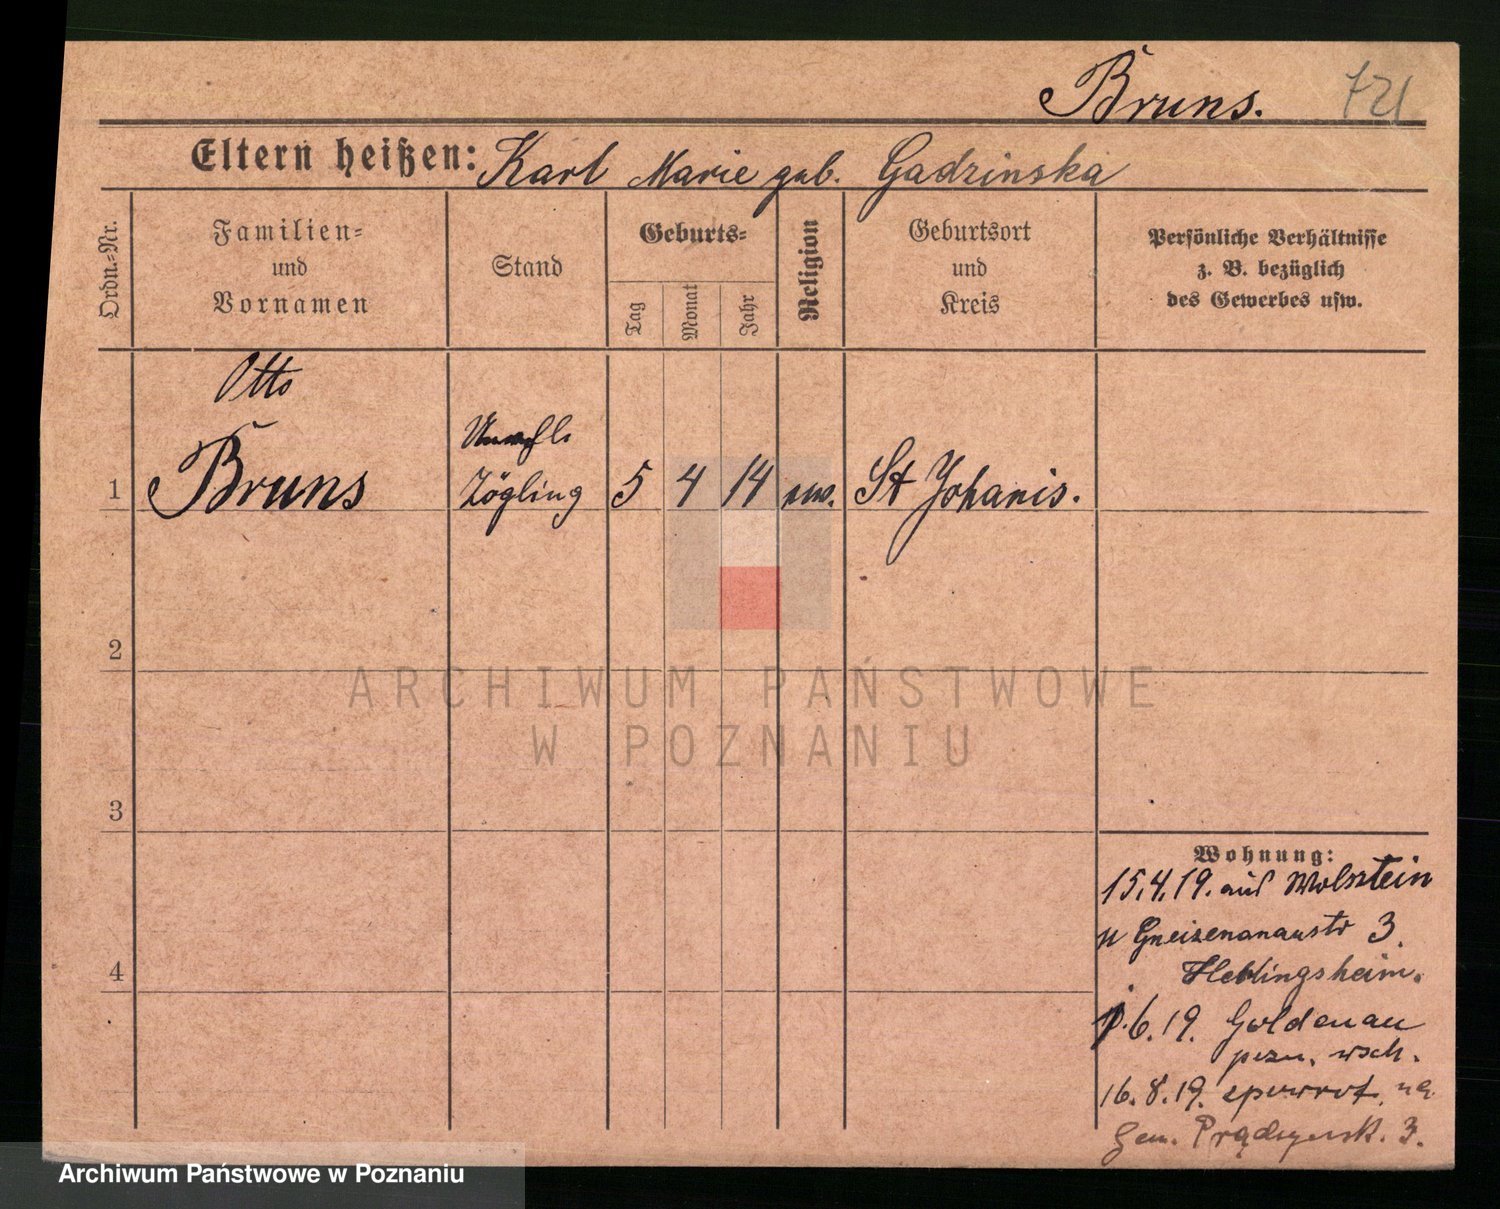 Bruns. 721
Eltern heißen: Karl Marie geb. Gadzinska
Ordn.-Nr.
Familien-
und
Vornamen
Stand
Geburts-
Tag
Monat
Jahr
Religion
Geburtsort
und
Kreis
Persönliche Verhältnisse
z. B. bezüglich
des Gewerbes usw.
Otto
1 Bruns Zögling 5 4 14 St Johanis.
2
3
4
Wohnung:
15.4.19. aus Wolstein
n Gneisenaustr 3.
Säuglingsheim.
6.19. Goldenau
pozn. wsch.
16.8.19. spowrot. na
Gen. Prądzynsk. 3.
ARCHIWUM PAŃSTWOWE
W POZNANIU
Archiwum Państwowe w Poznaniu